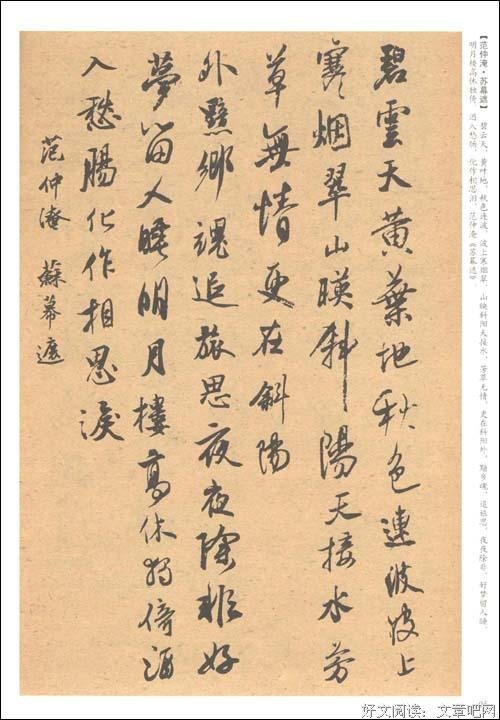 【范仲淹·苏幕遮】 碧云天，黄叶地，秋色连波，波上寒烟翠。山映斜阳天接水，芳草无情，更在斜阳外。黯乡魂，追旅思，夜夜除非，好梦留人睡。
明月楼高休独倚，酒入愁肠，化作相思泪。范仲淹《苏幕遮》
碧雲天黃葉地秋色連波波上
寒烟翠山暎斜陽天接水芳
草無情更在斜陽
外黯鄉魂追旅思夜夜除非好
夢留人睡明月樓高休獨倚酒
入愁腸化作相思淚
范仲淹 蘇幕遮
好文阅读：文章吧网